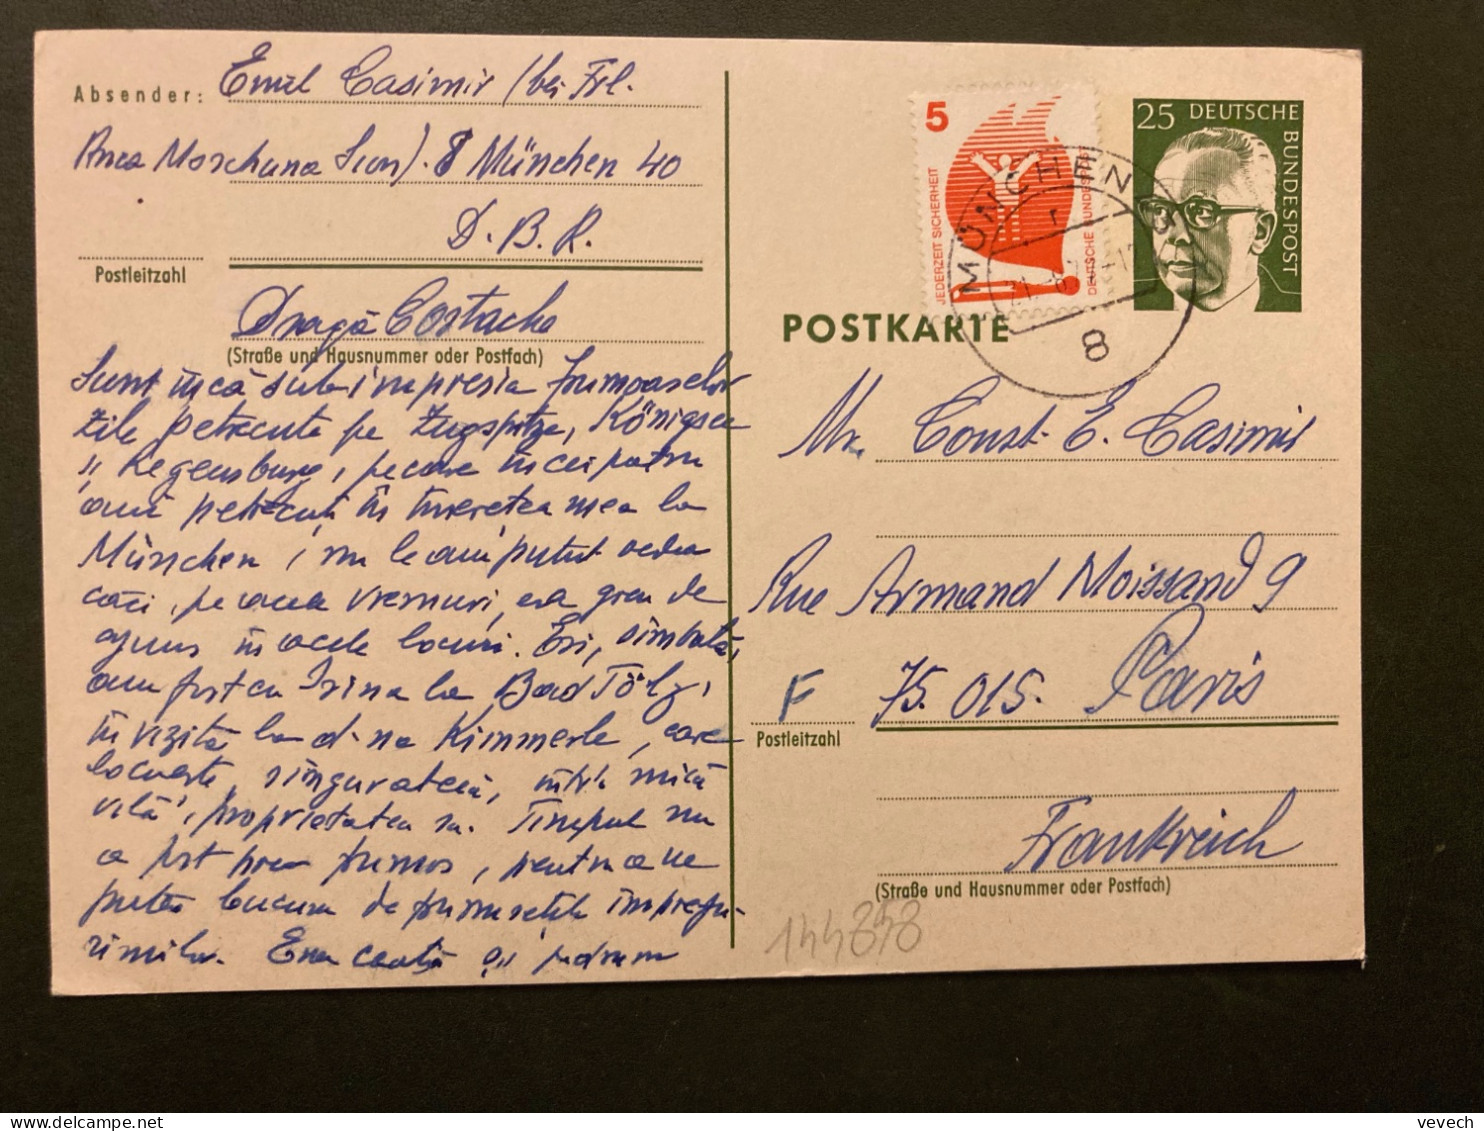 Absender: Emil Casimir (bei Frl.
Anca Moschuna Sion). 8 München 40
D. B. R.
Postleitzahl
Dragă Costache
(Straße und Hausnummer oder Postfach)
Sunt încă sub impresia frumoaselor
zile petrecute pe Zugspitze, Königsee
și Regensburg, pe care în cei patru
ani petrecuți în tinerețea mea la
München, nu le-am putut vedea
căci, pe acea vremuri, era greu de
ajuns în acele locuri. Eri, sîmbătă,
am fost cu Irina la Bad Tölz,
în vizită la d-na Kimmerle, care
locuește, singuratecă, într'o mică
vilă, proprietatea sa. Timpul nu
a fost prea frumos, pentru a ne
putea bucura de frumusețile împreju-
rimilor. Era ceață și
5
JEDERZEIT SICHERHEIT
DEUTSCHE BUNDESPOST
25 DEUTSCHE
BUNDESPOST
MÜNCHEN
8
POSTKARTE
Mr. Const. E. Casimir
Rue Armand Moissand 9
F 75.015. Paris
Postleitzahl
Frankreich
(Straße und Hausnummer oder Postfach)
144858
vevech